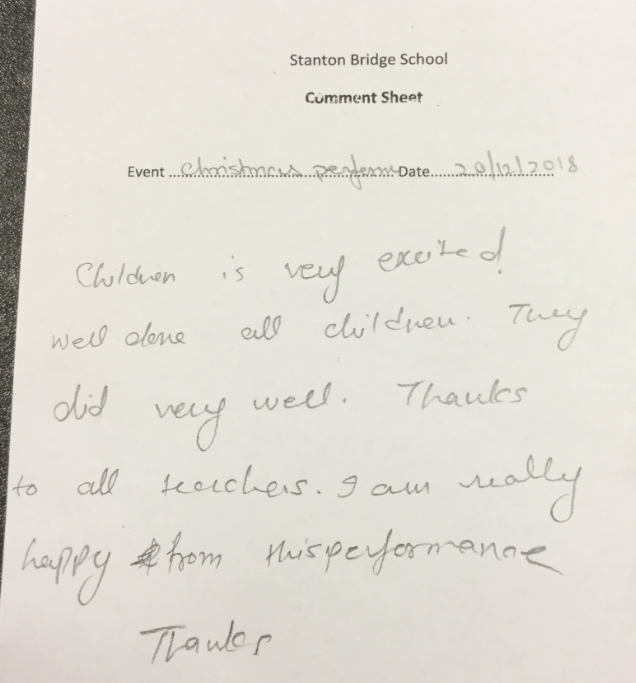 Stanton Bridge School
Comment Sheet
Event ...Christmas perform Date......20/12/2018
Children is very excited
well done all children. They
did very well. Thanks
to all teachers. I am really
happy from this performance
Thanks